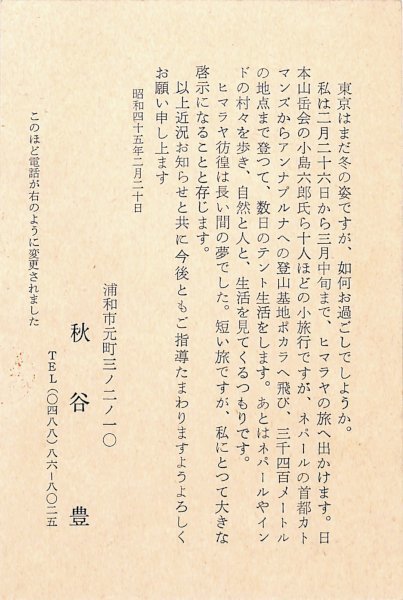 東京はまだ冬の姿ですが、如何お過ごしでしようか。
私は二月二十六日から三月中旬まで、ヒマラヤの旅へ出かけます。日
本山岳会の小島六郎氏ら十人ほどの小旅行ですが、ネパールの首都カト
マンズからアンナプルナへの登山基地ポカラへ飛び、三千四百メートル
の地点まで登つて、数日のテント生活をします。あとはネパールやイン
ドの村々を歩き、自然と人と、生活を見てくるつもりです。
ヒマラヤ彷徨は長い間の夢でした。短い旅ですが、私にとつて大きな
啓示になることと存じます。
以上近況お知らせと共に今後ともご指導たまわりますようよろしく
お願い申し上ます
昭和四十五年二月二十日
浦和市元町三ノ二ノ一〇
秋谷豊
TEL(〇四八八)八六ー八〇二五
このほど電話が右のように変更されました